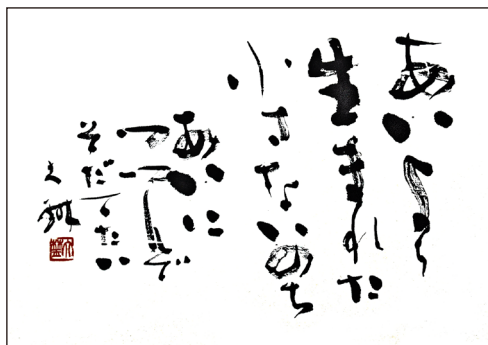 あいから
生まれた
小さないのち
あいに
つつんで
そだてたい